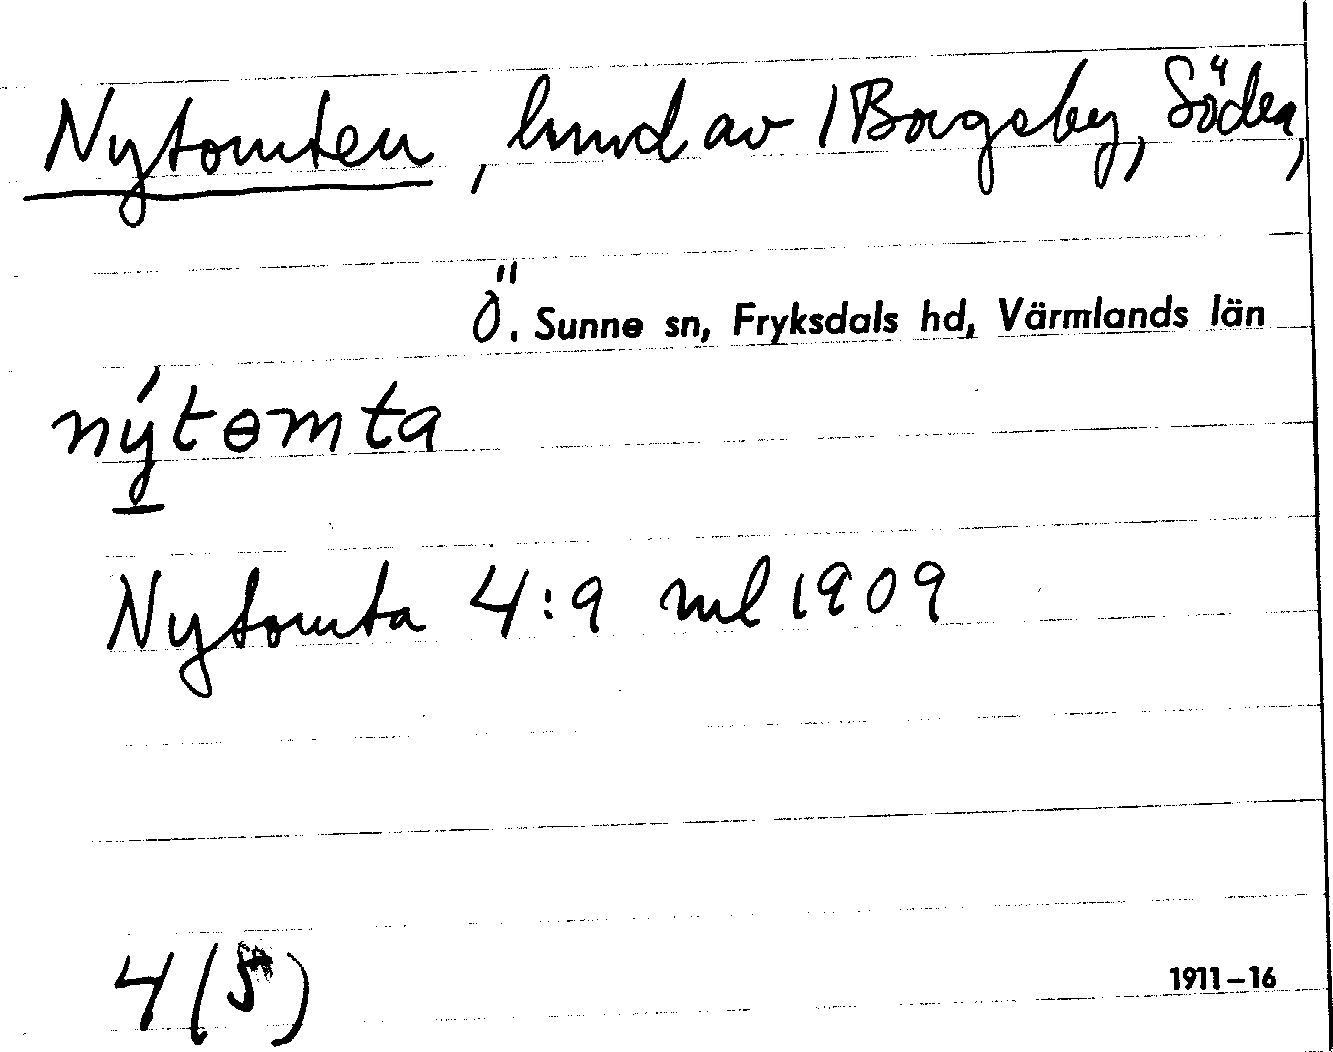 Nytomten, lmd av 1 Borgeby, Södra,
Ö. Sunne sn, Fryksdals hd, Värmlands län
nýtɵmta
Nytomta 4:9 ml 1909
4 (5)
1911–16